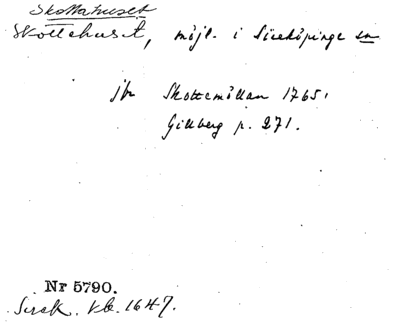 Skottahuset
Skottehuset, möjl. i Sireköpinge sn
jfr Skottemöllan 1765,
Gillberg p. 271.
Nr 5790.
Sirek. kb. 1647.